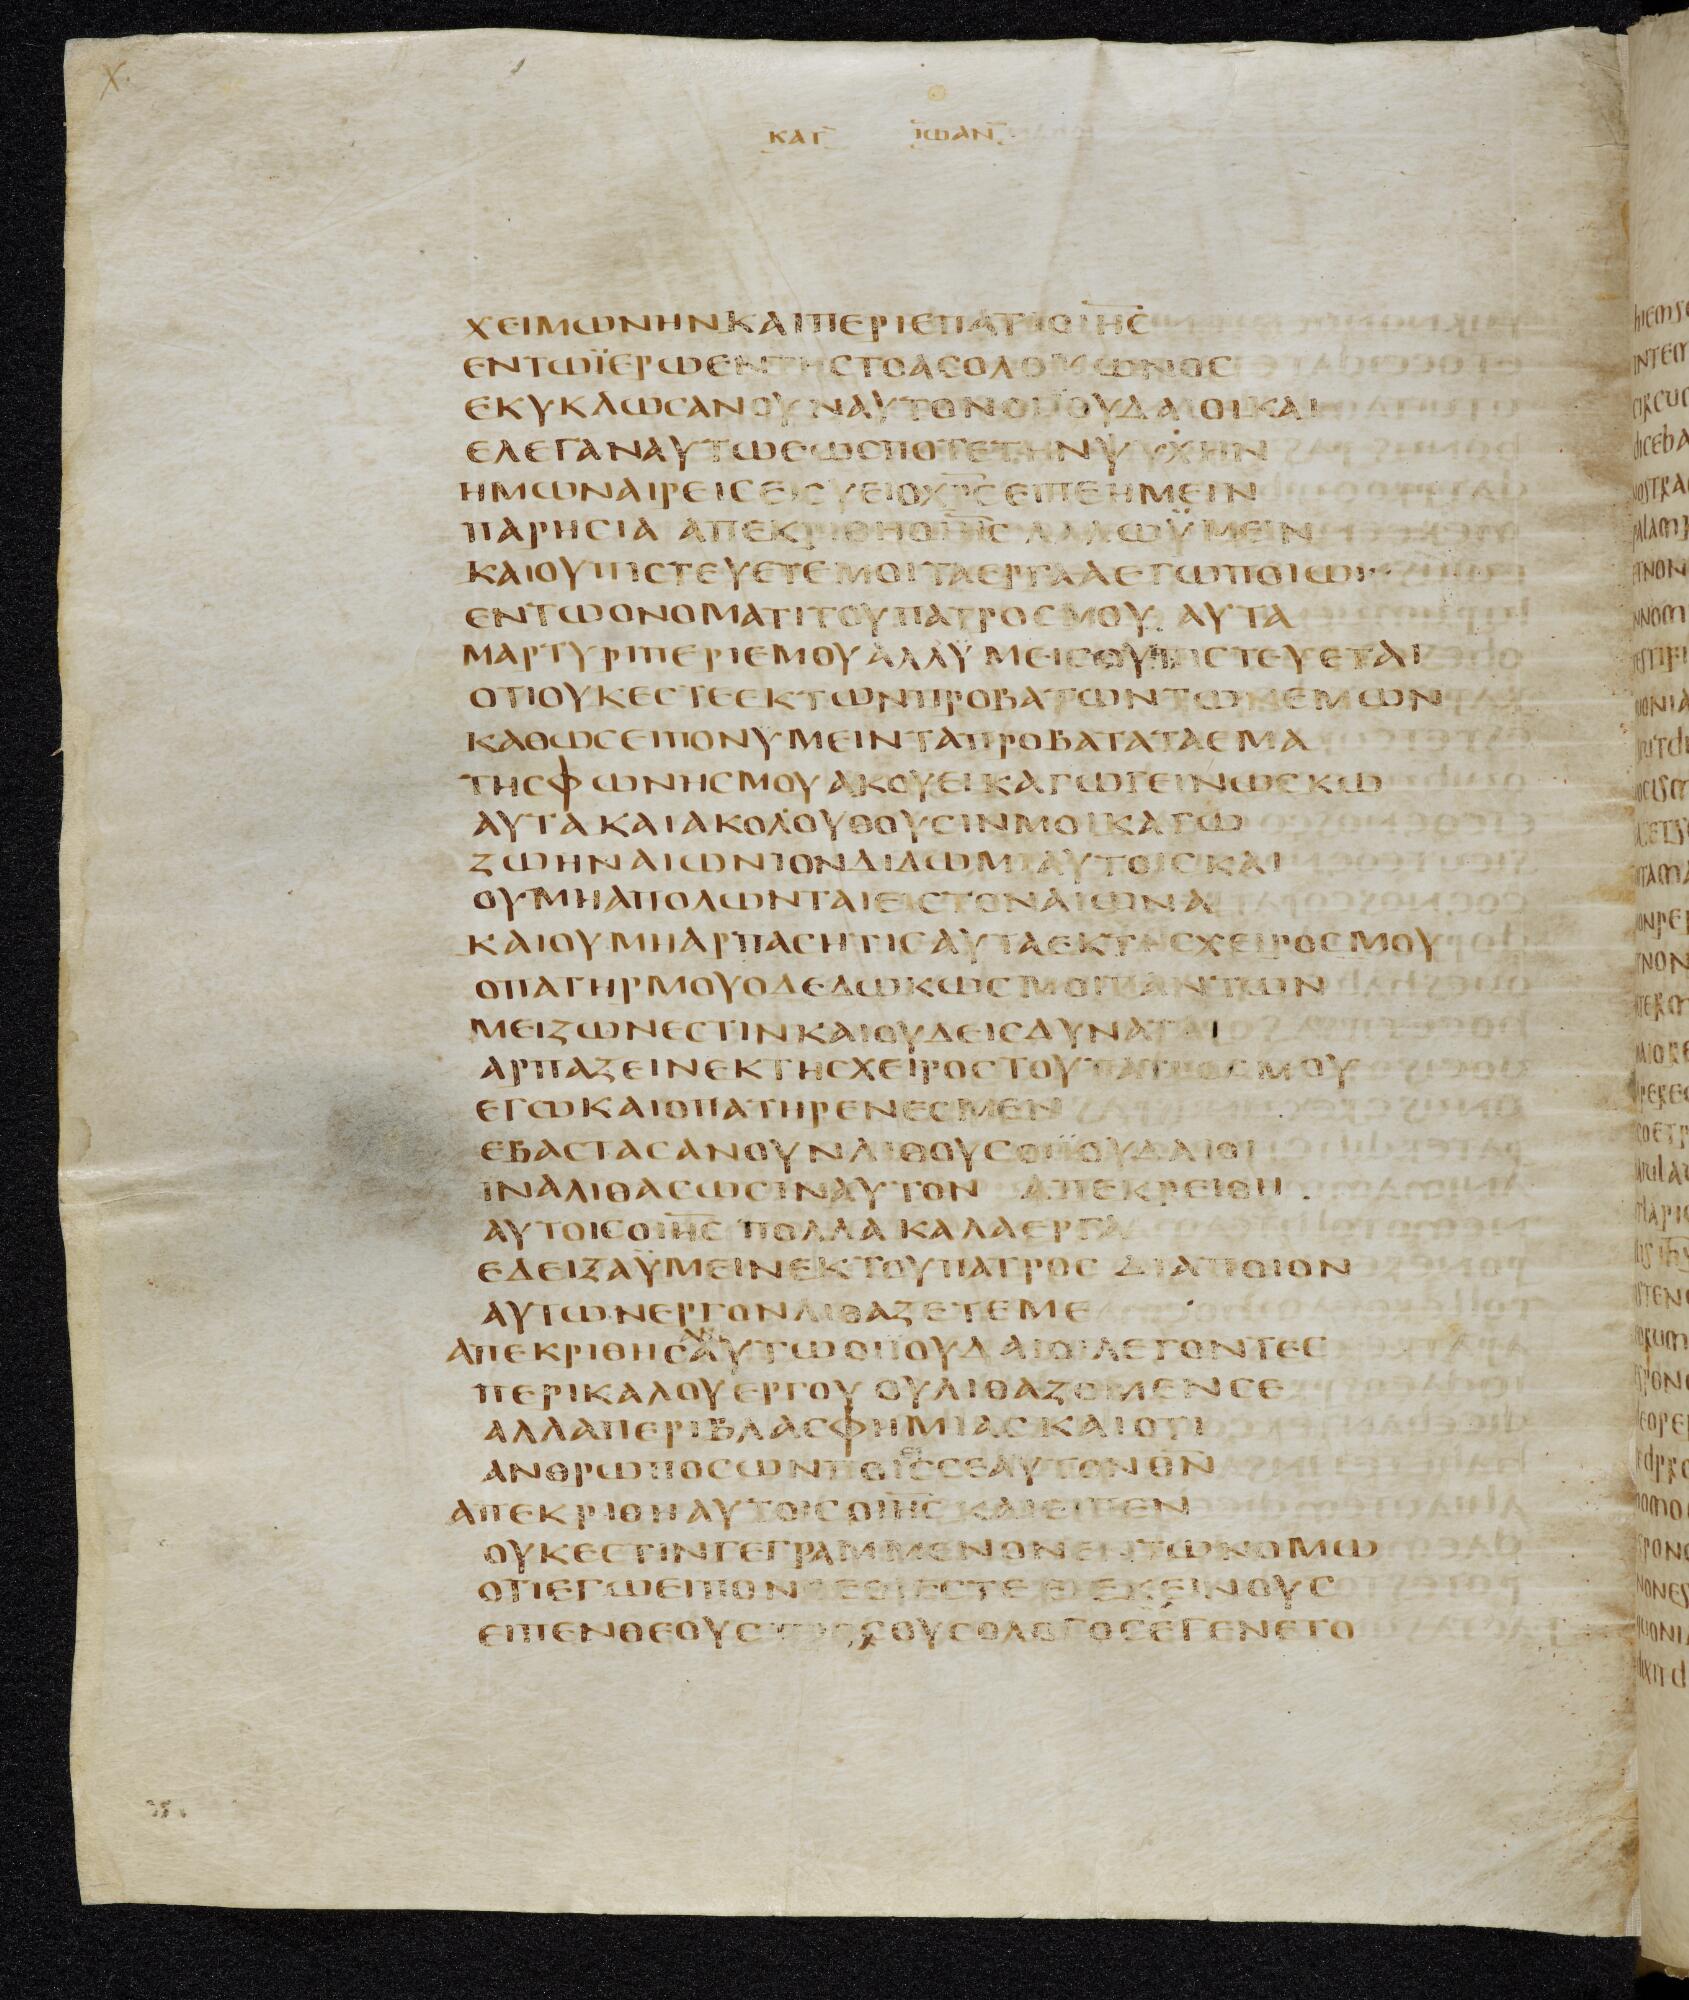 ΚΑΤ ΙΩΑΝ
ΧΕΙΜΩΝΗΝΚΑΙΠΕΡΙΕΠΑΤΙΟΙΗΣ
ΕΝΤΩΪΕΡΩΕΝΤΗΣΤΟΑΣΟΛΟΜΩΝΟΣ
ΕΚΥΚΛΩΣΑΝΟΥΝΑΥΤΟΝΟΙΪΟΥΔΑΙΟΙΚΑΙ
ΕΛΕΓΑΝΑΥΤΩΕΩΣΠΟΤΕΤΗΝΨΥΧΗΝ
ΗΜΩΝΑΙΡΕΙΣΕΙΣΥΕΙΟΧΡΣΕΙΠΕΗΜΕΙΝ
ΠΑΡΗΣΙΑ ΑΠΕΚΡΙΘΗΟΙΗΣ ΛΑΛΩΫΜΕΙΝ
ΚΑΙΟΥΠΙΣΤΕΥΕΤΕΜΟΙΤΑΕΡΓΑΑΕΓΩΠΟΙΩ
ΕΝΤΩΟΝΟΜΑΤΙΤΟΥΠΑΤΡΟΣΜΟΥ ΑΥΤΑ
ΜΑΡΤΥΡΙΠΕΡΙΕΜΟΥΑΛΛΫΜΕΙΣΟΥΠΙΣΤΕΥΕΤΑΙ
ΟΤΙΟΥΚΕΣΤΕΕΚΤΩΝΠΡΟΒΑΤΩΝΤΩΝΕΜΩΝ
ΚΑΘΩΣΕΙΠΟΝΫΜΕΙΝΤΑΠΡΟΒΑΤΑΤΑΕΜΑ
ΤΗΣΦΩΝΗΣΜΟΥΑΚΟΥΕΙΚΑΓΩΓΕΙΝΩΣΚΩ
ΑΥΤΑΚΑΙΑΚΟΛΟΥΘΟΥΣΙΝΜΟΙΚΑΓΩ
ΖΩΗΝΑΙΩΝΙΟΝΔΙΔΩΜΙΑΥΤΟΙΣΚΑΙ
ΟΥΜΗΑΠΟΛΩΝΤΑΙΕΙΣΤΟΝΑΙΩΝΑ
ΚΑΙΟΥΜΗΑΡΠΑΣΗΤΙΣΑΥΤΑΕΚΤΗΣΧΕΙΡΟΣΜΟΥ
ΟΠΑΤΗΡΜΟΥΟΔΕΔΩΚΩΣΜΟΙΠΑΝΤΩΝ
ΜΕΙΖΩΝΕΣΤΙΝΚΑΙΟΥΔΕΙΣΔΥΝΑΤΑΙ
ΑΡΠΑΖΕΙΝΕΚΤΗΣΧΕΙΡΟΣΤΟΥΠΑΤΡΟΣΜΟΥ
ΕΓΩΚΑΙΟΠΑΤΗΡΕΝΕΣΜΕΝ
ΕΒΑΣΤΑΣΑΝΟΥΝΛΙΘΟΥΣΟΙΪΟΥΔΑΙΟΙ
ΪΝΑΛΙΘΑΣΩΣΙΝΑΥΤΟΝ ΑΠΕΚΡΕΙΘΗ
ΑΥΤΟΙΣΟΙΗΣ ΠΟΛΛΑΚΑΛΑΕΡΓΑ
ΕΔΕΙΞΑΫΜΕΙΝΕΚΤΟΥΠΑΤΡΟΣ ΔΙΑΠΟΙΟΝ
ΑΥΤΩΝΕΡΓΟΝΛΙΘΑΖΕΤΕΜΕ
ΑΠΕΚΡΙΘΗΣΑΝΑΥΤΩΟΙΪΟΥΔΑΙΟΙΛΕΓΟΝΤΕΣ
ΠΕΡΙΚΑΛΟΥΕΡΓΟΥΟΥΛΙΘΑΖΟΜΕΝΣΕ
ΑΛΛΑΠΕΡΙΒΛΑΣΦΗΜΙΑΣΚΑΙΟΤΙ
ΑΝΘΡΩΠΟΣΩΝΠΟΙΕΙΣΣΕΑΥΤΟΝΘΝ
ΑΠΕΚΡΙΘΗΑΥΤΟΙΣΟΙΗΣ ΚΑΙΕΙΠΕΝ
ΟΥΚΕΣΤΙΝΓΕΓΡΑΜΜΕΝΟΝΕΝΤΩΝΟΜΩ
ΟΤΙΕΓΩΕΙΠΟΝΘΕΟΙΕΣΤΕ ΕΙΕΚΕΙΝΟΥΣ
ΕΙΠΕΝΘΕΟΥΣΠΡΟΣΟΥΣΟΛΟΓΟΣΕΓΕΝΕΤΟ